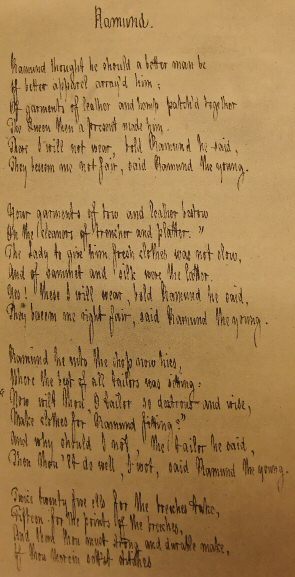 Ramund.
Ramund thought he should a better man be
If better apparel array'd him;
Of garments of leather and hemp patch'd together
The Queen then a present made him.
These I will not wear, bold Ramund he said,
They beseem me not fair, said Ramund the young.
Your garments of tow and leather bestow
On the cleaners of trencher and platter."
The Lady to give him fresh clothes was not slow,
And of sammet and silk were the latter.
Yes! these I will wear, bold Ramund he said,
They beseem me right fair, said Ramund the young.
Ramund he into the shop now hies,
Where the best of all tailors was sitting:
Now wilt thou, O tailor so dextrous and wise,
Make clothes for Ramund fitting?"
And why should I not, the tailor he said,
Then thou'lt do well, I wot, said Ramund the young.
Twice twenty five ells for the breeches take,
Fifteen for the points of the breeches,
And them thou must strong and durable make,
If thou therein stitches